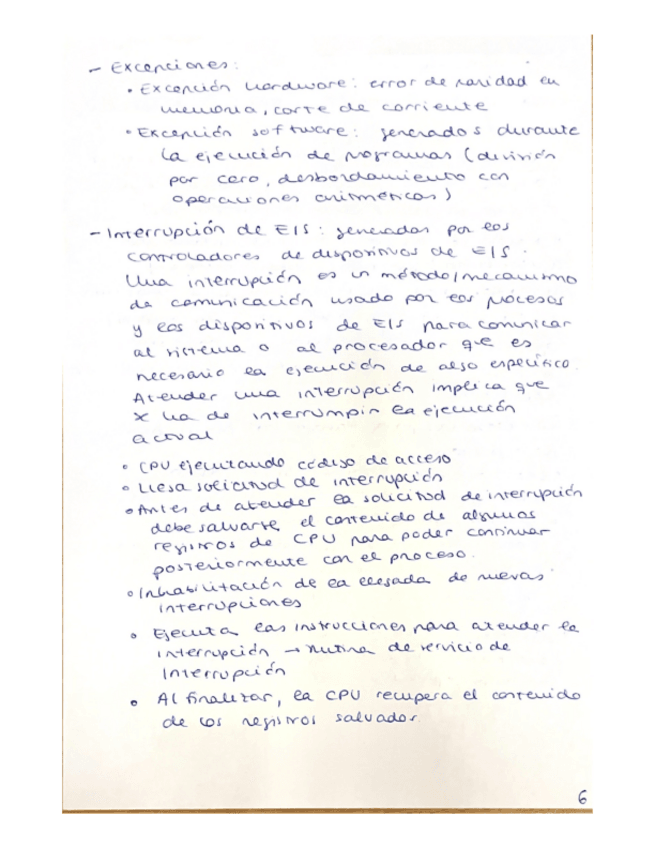 - Excepciones:
• Excepción hardware: error de paridad en
memoria, corte de corriente
• Excepción software: generados durante
la ejecución de programas (división
por cero, desbordamiento con
operaciones aritméticas)
- Interrupción de E/S: generadas por los
controladores de dispositivos de E/S.
Una interrupción es un método/mecanismo
de comunicación usado por los procesos
y los dispositivos de E/S para comunicar
al sistema o al procesador que es
necesario la ejecución de algo específico.
Atender una interrupción implica que
se ha de interrumpir la ejecución
actual
• CPU ejecutando código de acceso
• Llega solicitud de interrupción
• Antes de atender la solicitud de interrupción
debe salvarse el contenido de algunos
registros de CPU para poder continuar
posteriormente con el proceso.
• Inhabilitación de la llegada de nuevas
interrupciones
• Ejecuta las instrucciones para atender la
interrupción → rutina de servicio de
Interrupción
• Al finalizar, la CPU recupera el contenido
de los registros salvados.
6